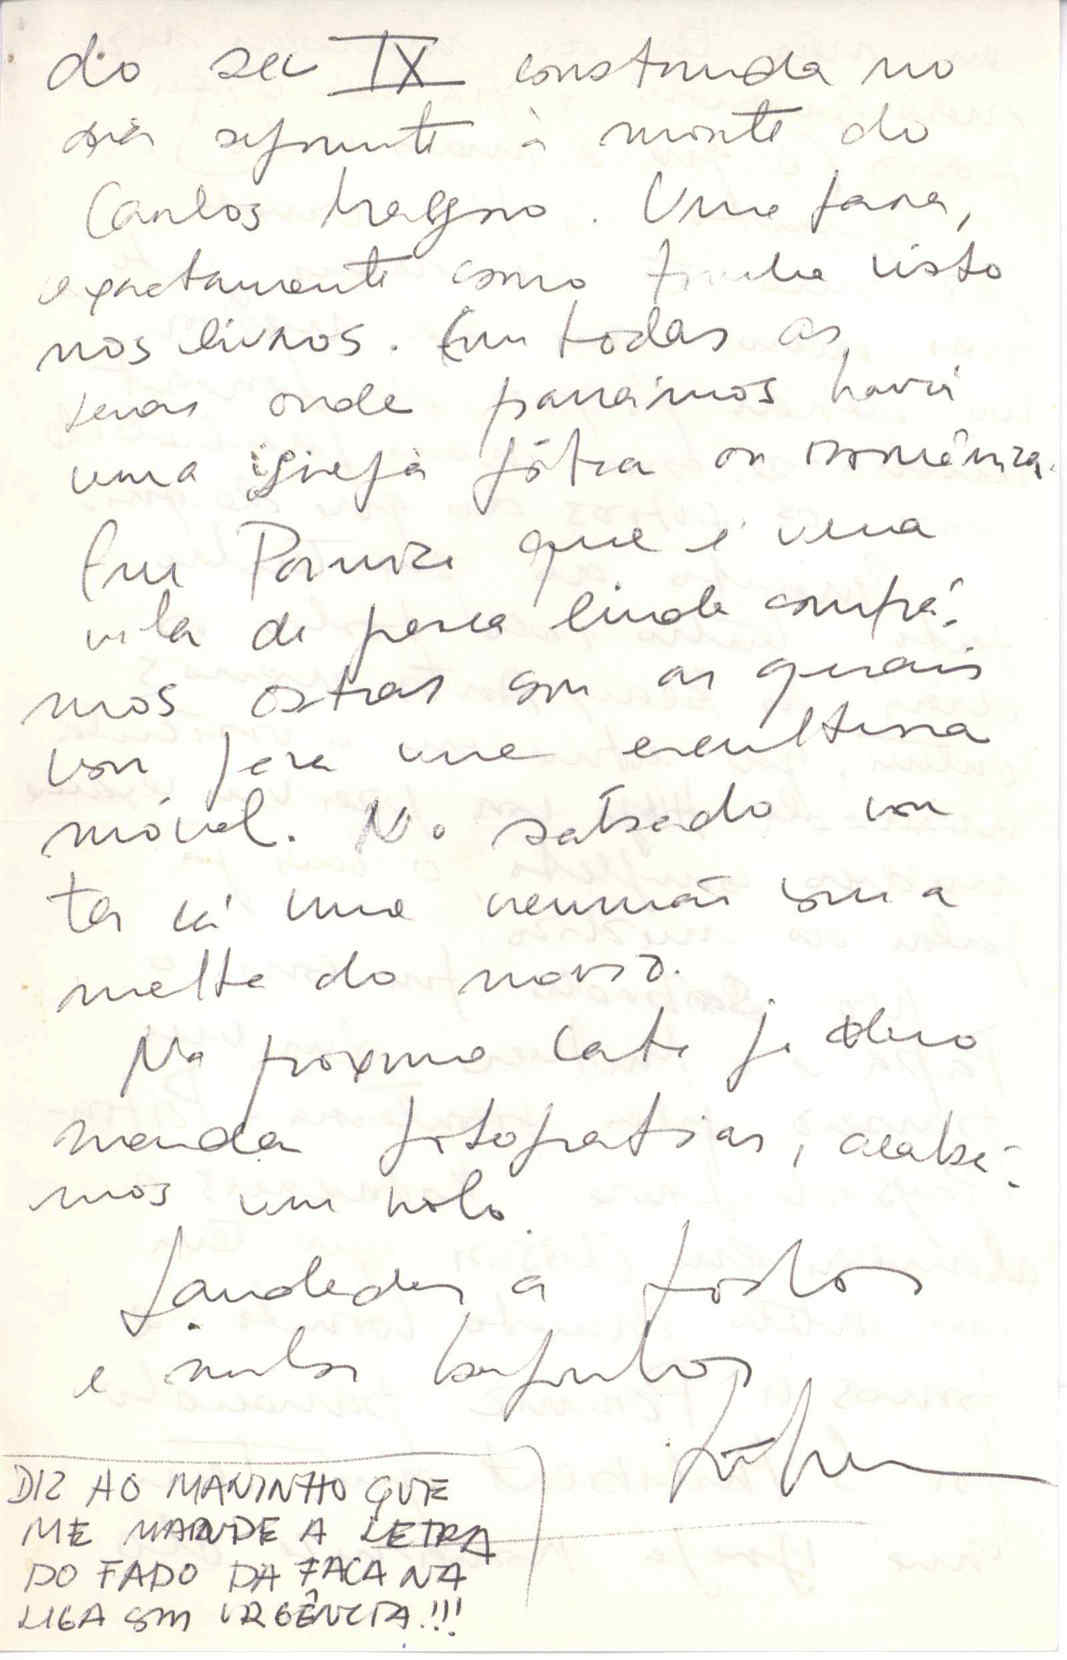 do sec IX construida no
dia seguinte à morte do
Carlos Magno. Uma jarra,
exactamente como tinha visto
nos livros. Em todas as
terras onde parámos havia
uma igreja gótica ou românica.
Em Pornic que é uma
vila de pesca linda comprá-
mos ostras com as quais
vou fazer uma escultura
móvel. No sábado vou
ter cá uma reunião com a
malta do navio.
Na proxima carta já devo
mandar fotografias, acabá-
mos um rolo.
Saudades a todos
e muitos beijinhos
DIZ AO MANINHO QUE
ME MANDE A LETRA
DO FADO DA FACA NA
LIGA COM URGÊNCIA!!!